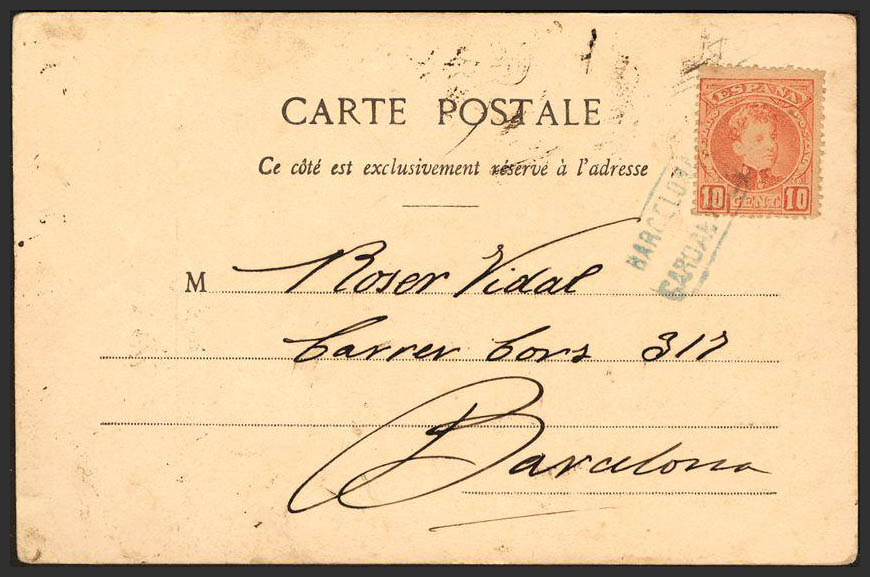 CARTE POSTALE
Ce côté est exclusivement réservé à l'adresse
ESPAÑA
10 CENT. 10
BARCELONA
M Roser Vidal
Carrer Cors 317
Barcelona